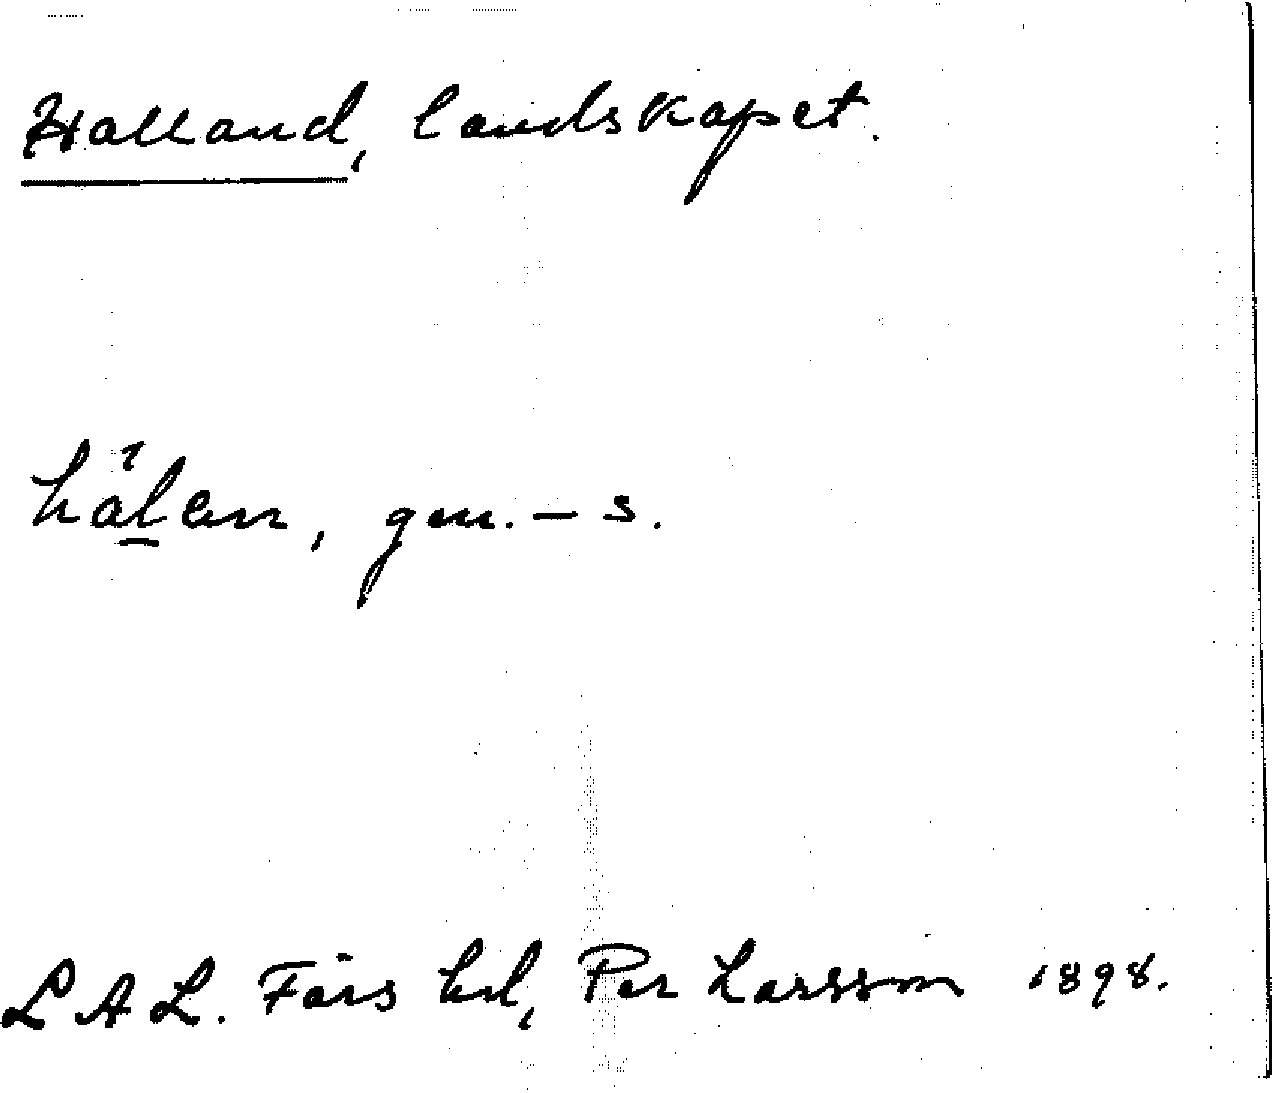 Halland, landskapet.
hálan, gen. – s.
LAL. Färs hd, Per Larsson 1898.